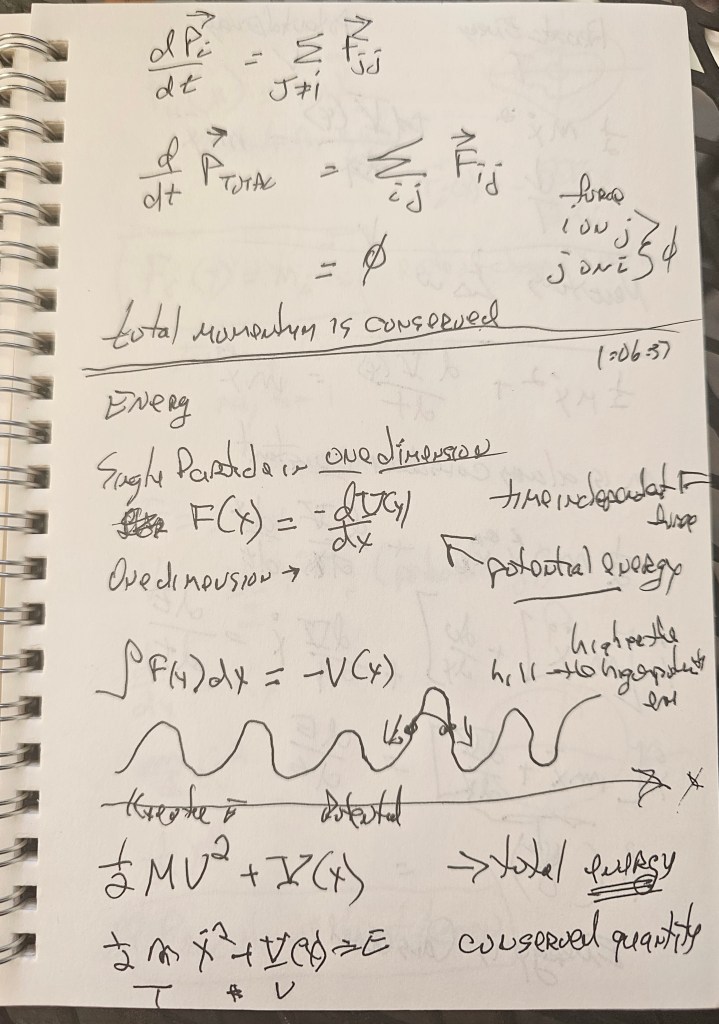 dP⃗i/dt = Σ J≠i F⃗jj
d/dt P⃗TOTAL = Σ ij F⃗ij
force
i ON j
j ON i } ϕ
= ϕ
total momentum is conserved
1:06:37
Energ
Single Particle in one dimension
F(x) = -dV(x)/dx
time independent F
force
One dimension →
potential energy
∫F(x)dx = -V(x)
high
hill →
Kinetic E
Potential
x
1/2 MV² + V(x) → total energy
1/2 m ẋ² + V(x) = E conserved quantity
T V